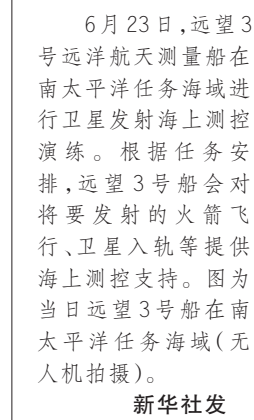 6月23日,远望3
号远洋航天测量船在
南太平洋任务海域进
行卫星发射海上测控
演练。根据任务安
排,远望3号船会对
将要发射的火箭飞
行、卫星入轨等提供
海上测控支持。图为
当日远望3号船在南
太平洋任务海域(无
人机拍摄)。
新华社发